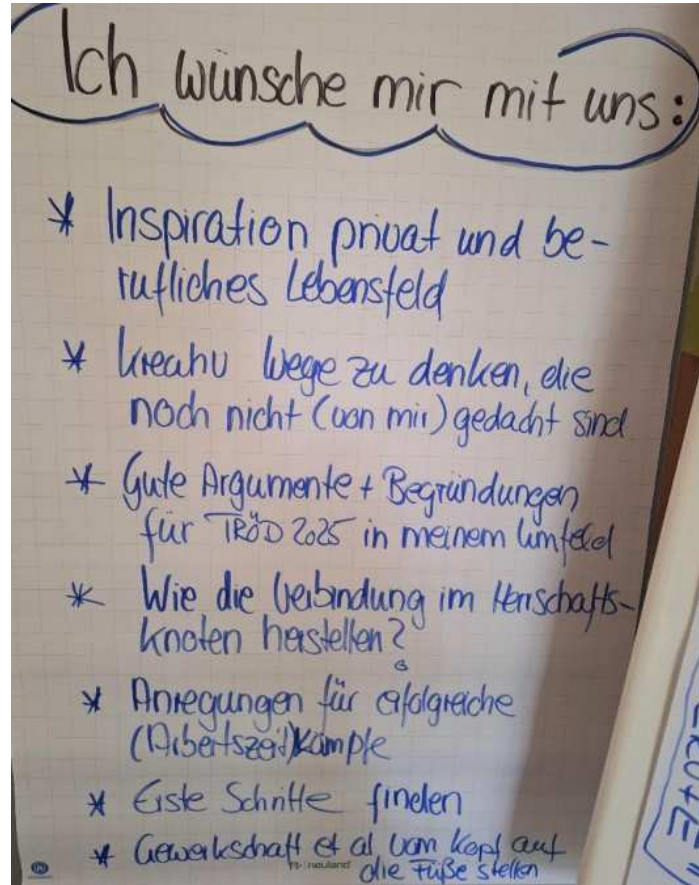 Ich wünsche mir mit uns:
* Inspiration privat und be-
rufliches Lebensfeld
* kreativ Wege zu denken, die
noch nicht (von mir) gedacht sind
* Gute Argumente + Begründungen
für TRÖD 2025 in meinem Umfeld
* Wie die Verbindung im Herrschafts-
knoten herstellen?
* Anregungen für erfolgreiche
(Arbeitszeit)kämpfe
* Erste Schritte finden
* Gewerkschaft et al vom Kopf auf
die Füße stellen
neuland